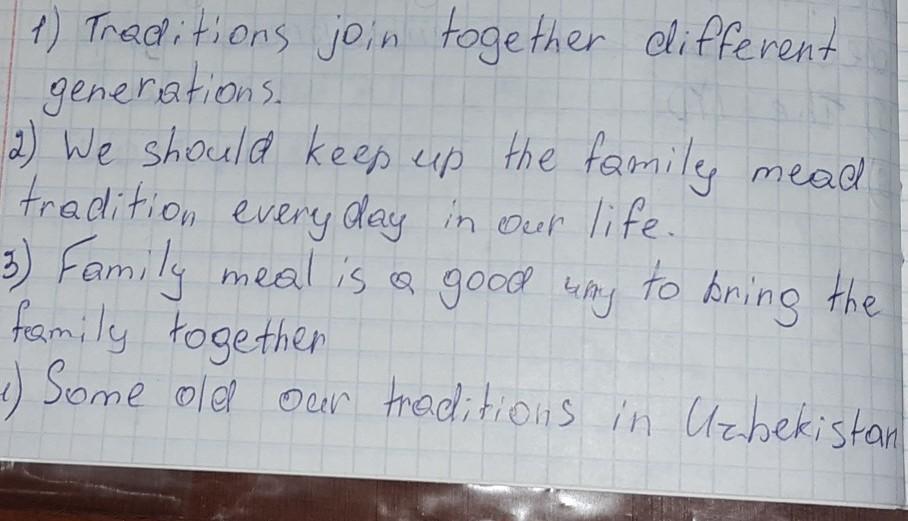 1) Traditions join together different
generations.
2) We should keep up the family mead
tradition every day in our life.
3) Family meal is a good way to bring the
family together
1) Some old our traditions in Uzbekistan